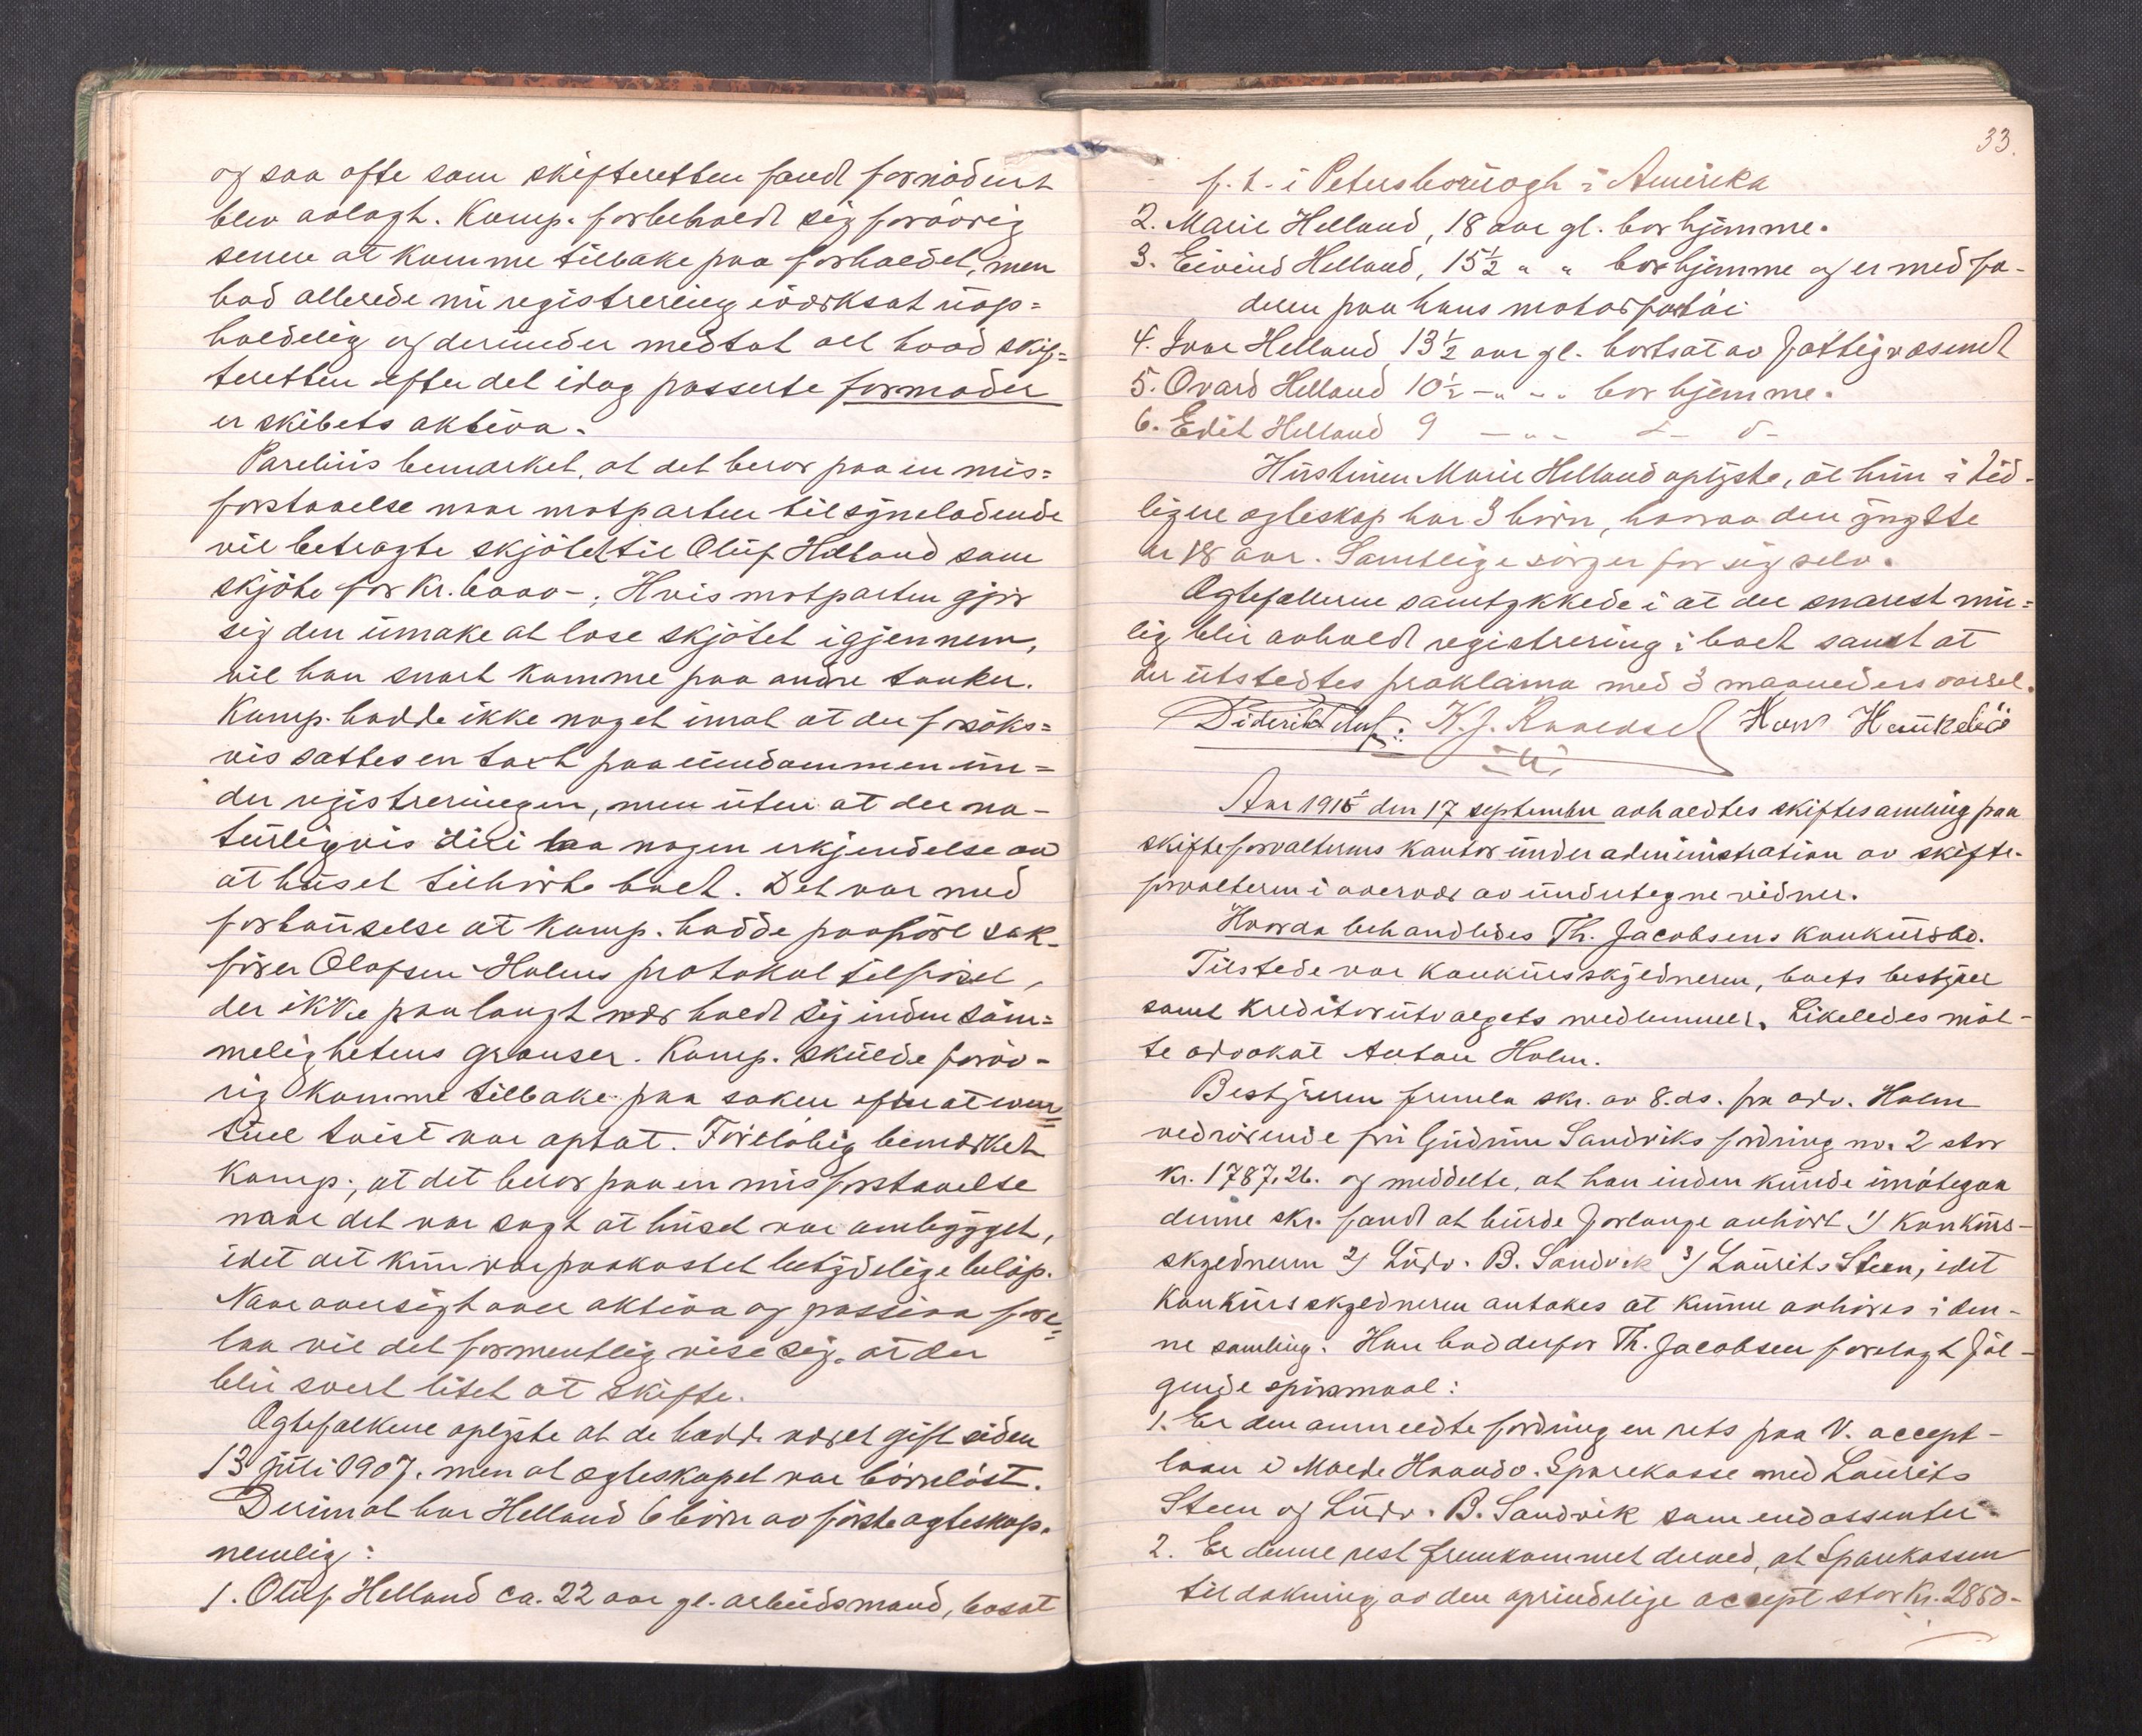 og saa ofte som skifteretten fandt fornødent
blev avlagt. Komp. forbeholdt sig forøvrig
senere at komme tilbake paa forholdet, men
bad allerede nu registrering iverksat uop=
holdelig og derunder medtat alt hvad skif=
teretten efter det idag passerte formoder
er skibets aktiva.
Parelius bemerket, at det beror paa en mis=
forstaaelse naar motparten tilsyneladende
vil betragte skjøtet til Oluf Helland som
skjøte for kr. 6000-. Hvis motparten gjør
sig den umake at læse skjøtet igjennem,
vil han snart komme paa andre tanker.
Komp. hadde ikke noget imot at der forsøks=
vis sattes en takst paa eiendommen un=
der registreringen, men uten at der na-
turligvis deri laa nogen erkjendelse av
at huset tilhørte boet. Det var med
forbauselse at komp. hadde paahørt sak-
fører Olafsen Holms protokoltilførsel,
der ikke paa langt nær holdt sig inden søm=
melighetens grænser. Komp. skulde forøv-
rig komme tilbake paa saken efterat even
tuel tvist var optat. Foreløbig bemerket
Komp., at det beror paa en misforstaaelse
naar det var sagt at huset var ombygget,
idet det kun var paakostet ubetydelige beløp.
Naar oversigt over aktiva og passiva fore=
laa vil det formentlig vise sig, at der
blir svert litet at skifte.
Egtefolkene oplyste at de hadde været gift siden
13 juli 1907. men at egteskapet var barnløst.
Derimot har Helland 6 børn av første egteskap.
nemlig:
1. Oluf Helland ca. 22 aar gl. arbeidsmand, bosat
33.
p. t. i Petersborough i Amerika
2. Marie Helland, 18 aar gl. bor hjemme.
3. Eivind Helland, 15½ " " bor hjemme og er med fa-
deren paa hans motorfartøi
4. Ivar Helland 13½ aar gl. bortsat av fattigvæsenet
5. Ovard Helland 10½ - " - " bor hjemme.
6. Edit Helland 9 - " - d - o -
Hustruen Marie Helland oplyste, at hun i tid-
ligere egteskap har 3 børn, hvorav den yngste
er 18 aar. Samtlige sørger for sig selv.
Egtefellerne samtykkede i at der snarest mu=
lig blir avholdt registrering i boet samt at
der utstedtes proklama med 3 maaneders varsel.
K. J. Knoedsel Haukelid
Aar 1915 den 17 september avholdtes skiftesamling paa
skifteforvalterens kontor under administration av skifte-
forvalteren i overvær av undertegnede vidner.
Hvorda behandledes Th. Jacobsens konkursbo.
Tilstede var konkursskyldneren, boets bestyrer
samt kreditorutvalgets medlemmer. Likeledes møt-
te advokat Anton Holm.
Bestyreren fremla skr. av 8. ds. fra adv. Holm
vedrørende fru Gudrun Sandviks fordring no. 2 stor
kr. 1787,26. og meddelte, at han inden kunde imøtegaa
denne skr. fandt at burde forlange avhørt 1) konkurs-
skyldneren 2) Ludv. B. Sandvik 3) Laurits Steen, idet
konkursskyldneren antokes at kunne avhøres i den-
ne samling. Han bad derfor Th. Jacobsen forelagt føl-
gende spørsmaal:
1. Er den anmeldte fordring en rets paa V. accept-
laan i Molde Haandv. Sparekasse med Laurits
Steen og Ludv. B. Sandvik som endossenter.
2. Er denne rest fremkommet derved, at Sparekassen
til dækning av den oprindelige accept stor kr. 2850-